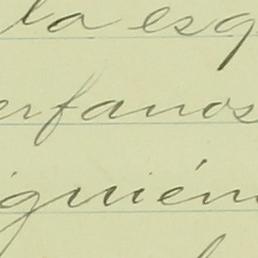 la esq
erfanos
iguién